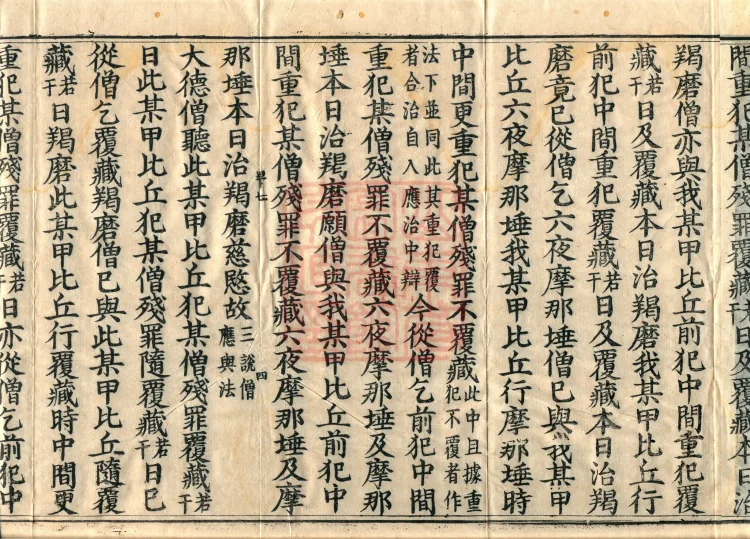 間重犯某僧殘罪覆藏若干日及覆藏本日治
羯磨僧亦與我某甲比丘前犯中間重犯覆
藏若干日及覆藏本日治羯磨我某甲比丘行
前犯中間重犯覆藏若干日及覆藏本日治羯
磨竟已從僧乞六夜摩那埵僧已與我某甲
比丘六夜摩那埵我某甲比丘行摩那埵時
中間更重犯某僧殘罪不覆藏此中且據重犯不覆者作
法下並同此其重犯覆者合治自入應治中辯今從僧乞前犯中間
重犯某僧殘罪不覆藏六夜摩那埵及摩那
埵本日治羯磨願僧與我某甲比丘前犯中
間重犯某僧殘罪不覆藏六夜摩那埵及摩
七 四
那埵本日治羯磨慈愍故三說僧應與法
大德僧聽此某甲比丘犯某僧殘罪覆藏若干
日此某甲比丘犯某僧殘罪隨覆藏若干日已
從僧乞覆藏羯磨僧已與此某甲比丘隨覆
藏若干日羯磨此某甲比丘行覆藏時中間更
重犯某僧殘罪覆藏若干日亦從僧乞前犯中